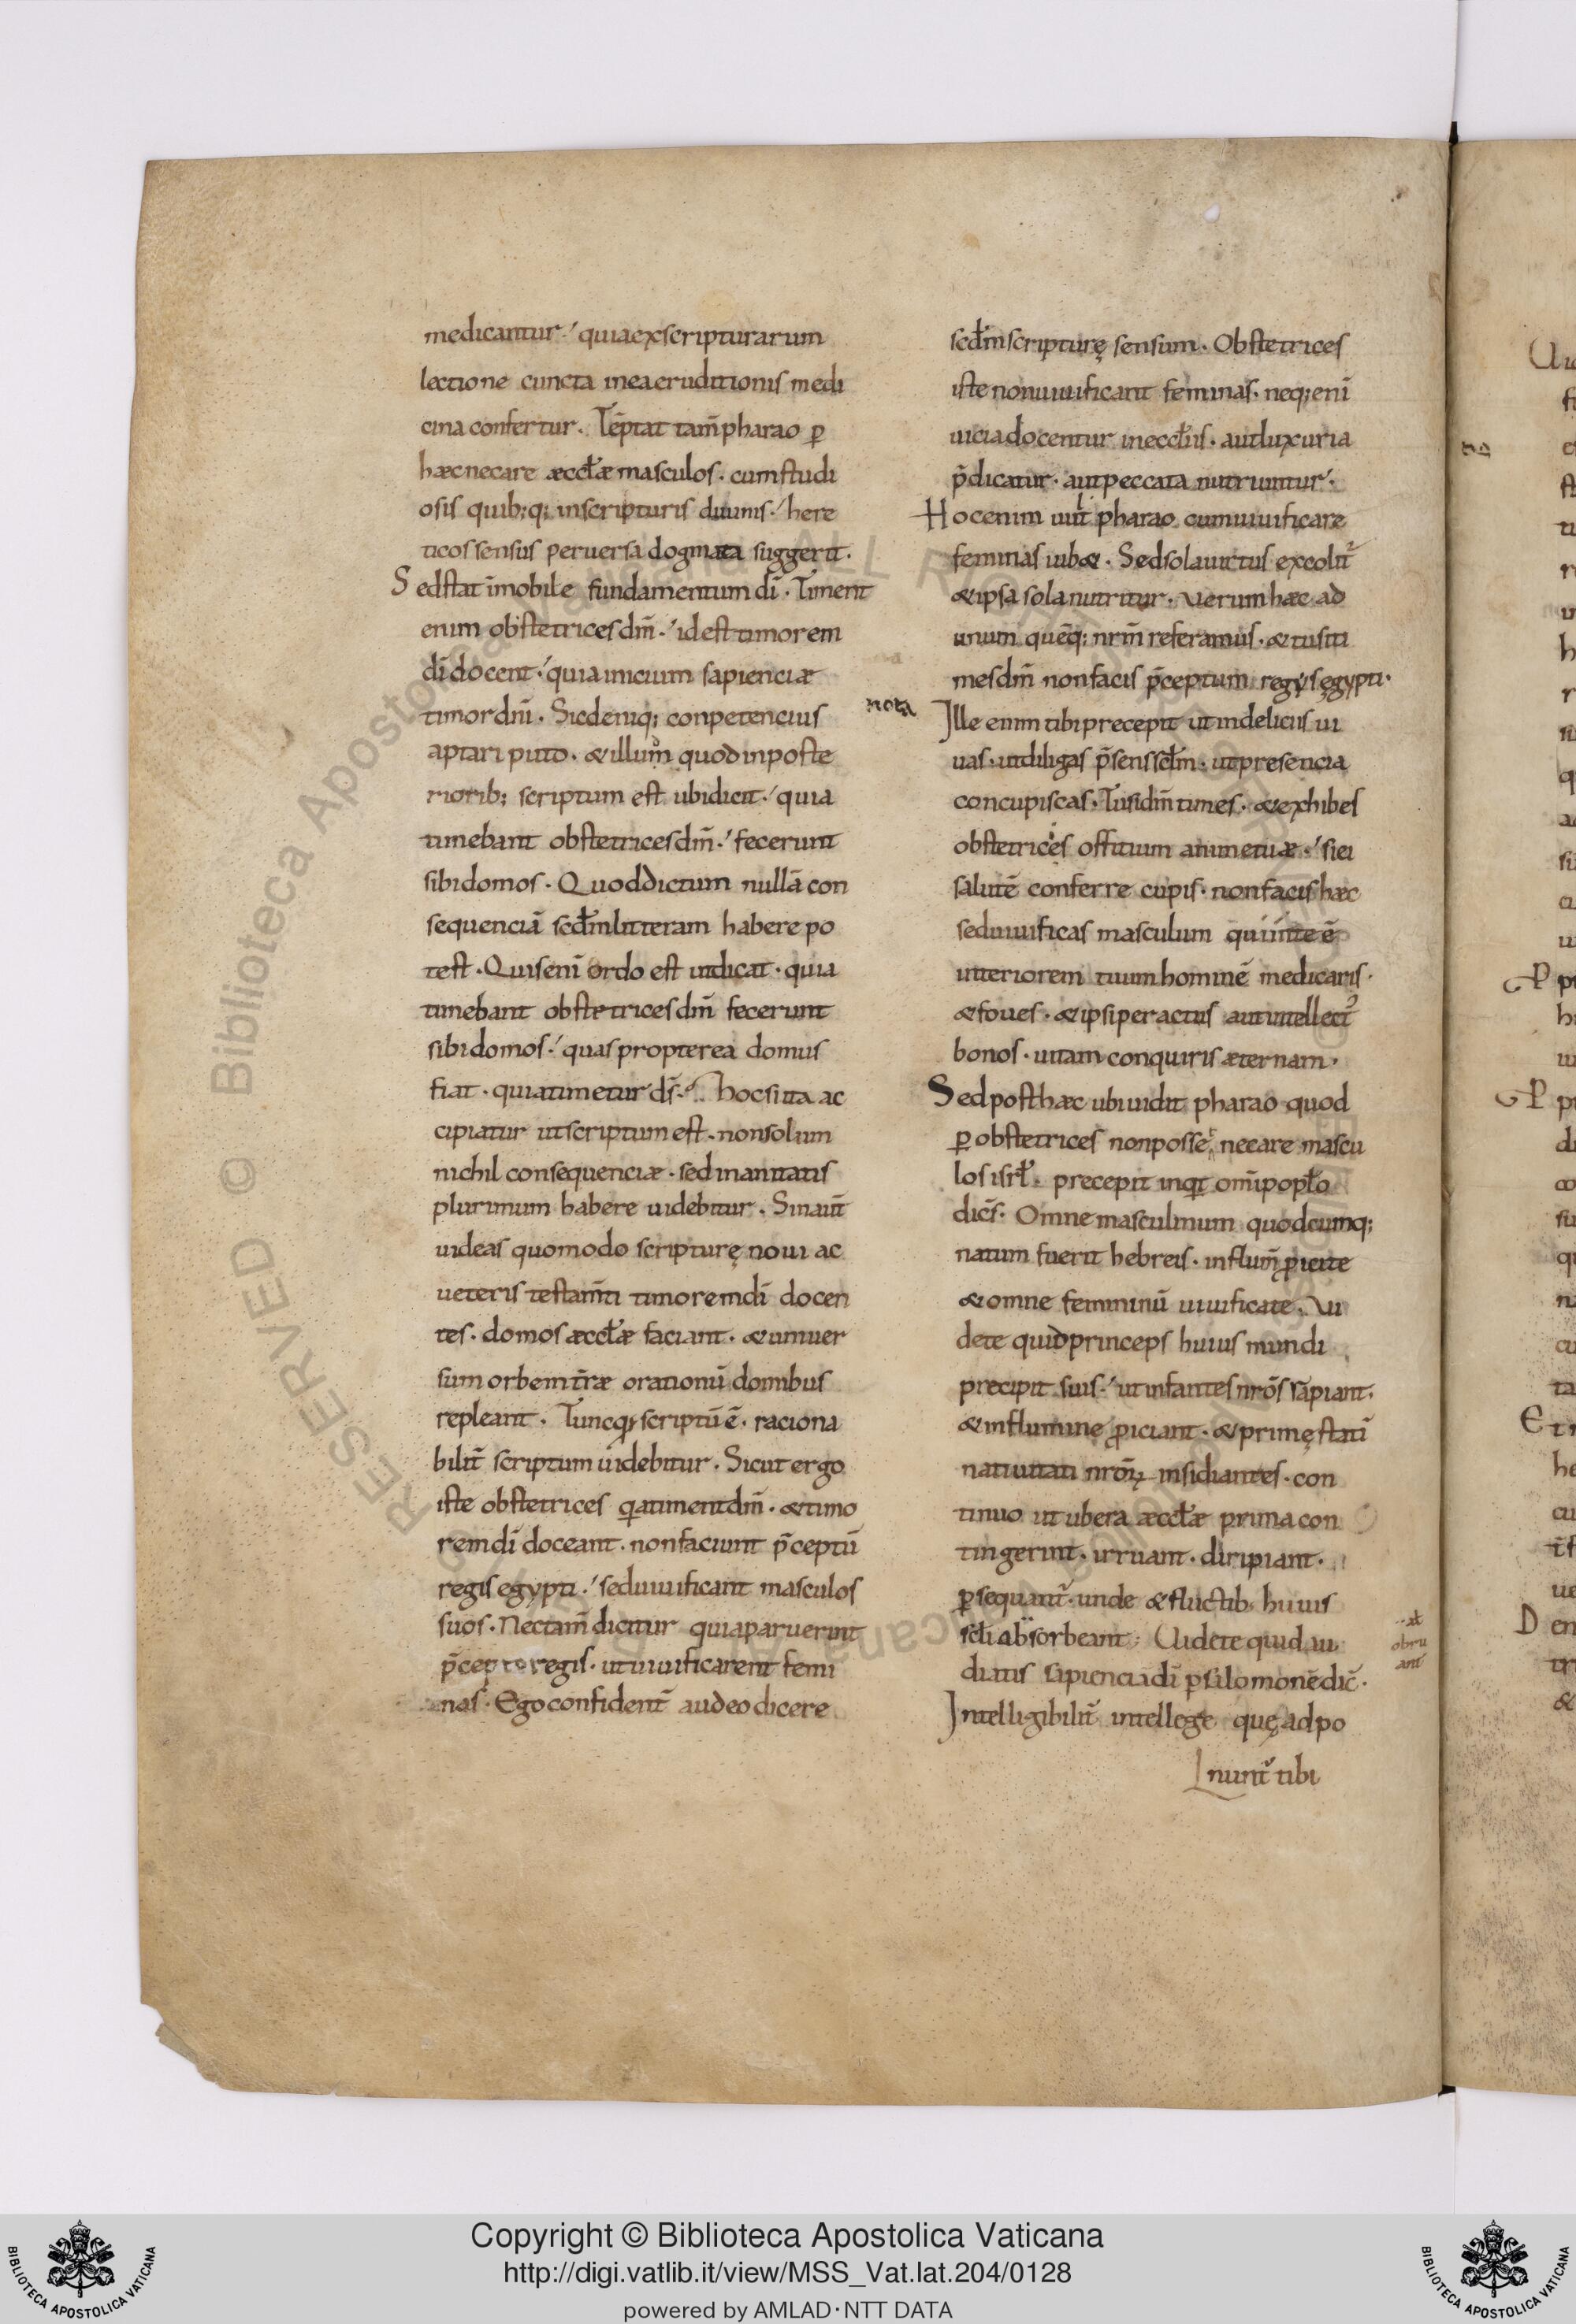 medicantur·' quiaexscripturarum
lectione cuncta ineaeruditionis medi
cina confertur. Tēptat tam̄ pharao ꝑ
hæcnecare æcctæ masculos. cumstudi
osis quib;q; inscripturis diuinis·' here
ticossensus peruersa dogmata suggerit.
Sedstat īmobile fundamentum dī. Timent
enim obstetrices dm̄·' idest timorem
dī docent·' quia inicium sapienciæ
timor dn̄i. Sicdeniq; conpetencius
aptari puto. &illum̄ quod inposte
riorib; scriptum est ubidicit·' quia
timebant obstetrices dm̄·' fecerunt
sibidomos. Quoddictum nullā con
sequenciā scd̄mlitteram habere po
test. Quisenī ordo est utdicat. quia
timebant obstetrices dm̄ fecerunt
sibidomos·' quaspropterea domus
fiat. quiatimetur ds̄. hocsiita ac
cipiatur utscriptumest. nonsolum
nichil consequenciæ. sed inanitatis
plurimum habere uidebitur. Sinaut̄
uideas quomodo scripturę noui ac
ueteris testam̄ti timoremdī docen
tes. domos æcctæ faciant. &uniuer
sum orbemtr̄æ orationū domibus
repleant. Tuncq; scriptū ē. raciona
bilit̄ scriptum uidebitur. Sicut ergo
iste obstetrices qatimentdm̄. &timo
remdī doceant. nonfaciunt p̄ceptū
regis egypti·' seduiuificant masculos
suos. Nectam̄ dicitur quiaparuerint
p̄cepto regis. utuiuificarent femi
nas. Egoconfident̄ audeo dicere
scd̄m scripturę sensum. Obstetrices
iste nonuiuificant feminas. neq;enī
uicia docentur inecctiis. autluxuria
p̄dicatur. autpeccata nutriuntur.
Hocenim uult pharao cumuiuificare
feminas iubet. Sedsolauirtus excolit᷑
&ipsa sola nutritur. uerum hæc ad
unum quēq; nr̄m referamus. &tusiti
mesdm̄ nonfacis p̄ceptum regys ęgypti.
nota
Ille enim tibi precepit utindeliciis ui
uas. utdiligas p̄senssctm. utpresencia
concupiscas. Tusidm̄ times. &exhibes
obstetricis offitium animetuæ·' siei
salutē conferre cupis. nonfacis hæc
seduiuificas masculum quiinte ē
interiorem tuum hominē medicaris.
&foues. &ipsiperactus autintellect᷑
bonos. uitam conquiris æternam.
Sedposthæc ubiuidit pharao quod
ꝑ obstetrices nonposse necare mascu
los isrt. precepit inqt om̄ipopto
dics̄. Omne masculinum quodcumq;
natum fuerit hebreis. influm̄ ꝓicite
&omne femininū uiuificate. Vi
dete quidprinceps huius mundi
precipit suis·' utinfantes nr̄os rapiant.
&influmine ꝓiciant. &primęstati
natiuitati nr̄oꝝ insidiantes. con
tinuo ut ubera æcctæ prima con
tingerint. irruant. diripiant.
ꝑsequant᷑. unde &fluctib; huius
scti absorbeant. Uidete quid au
obru
ant
diatis sapienciadī ꝑsalomonēdic̄.
Intelligibilit̄ intellege quę adpo
nunt᷑ tibi
Copyright © Biblioteca Apostolica Vaticana
http://digi.vatlib.it/view/MSS_Vat.lat.204/0128
powered by AMLAD·NTT DATA